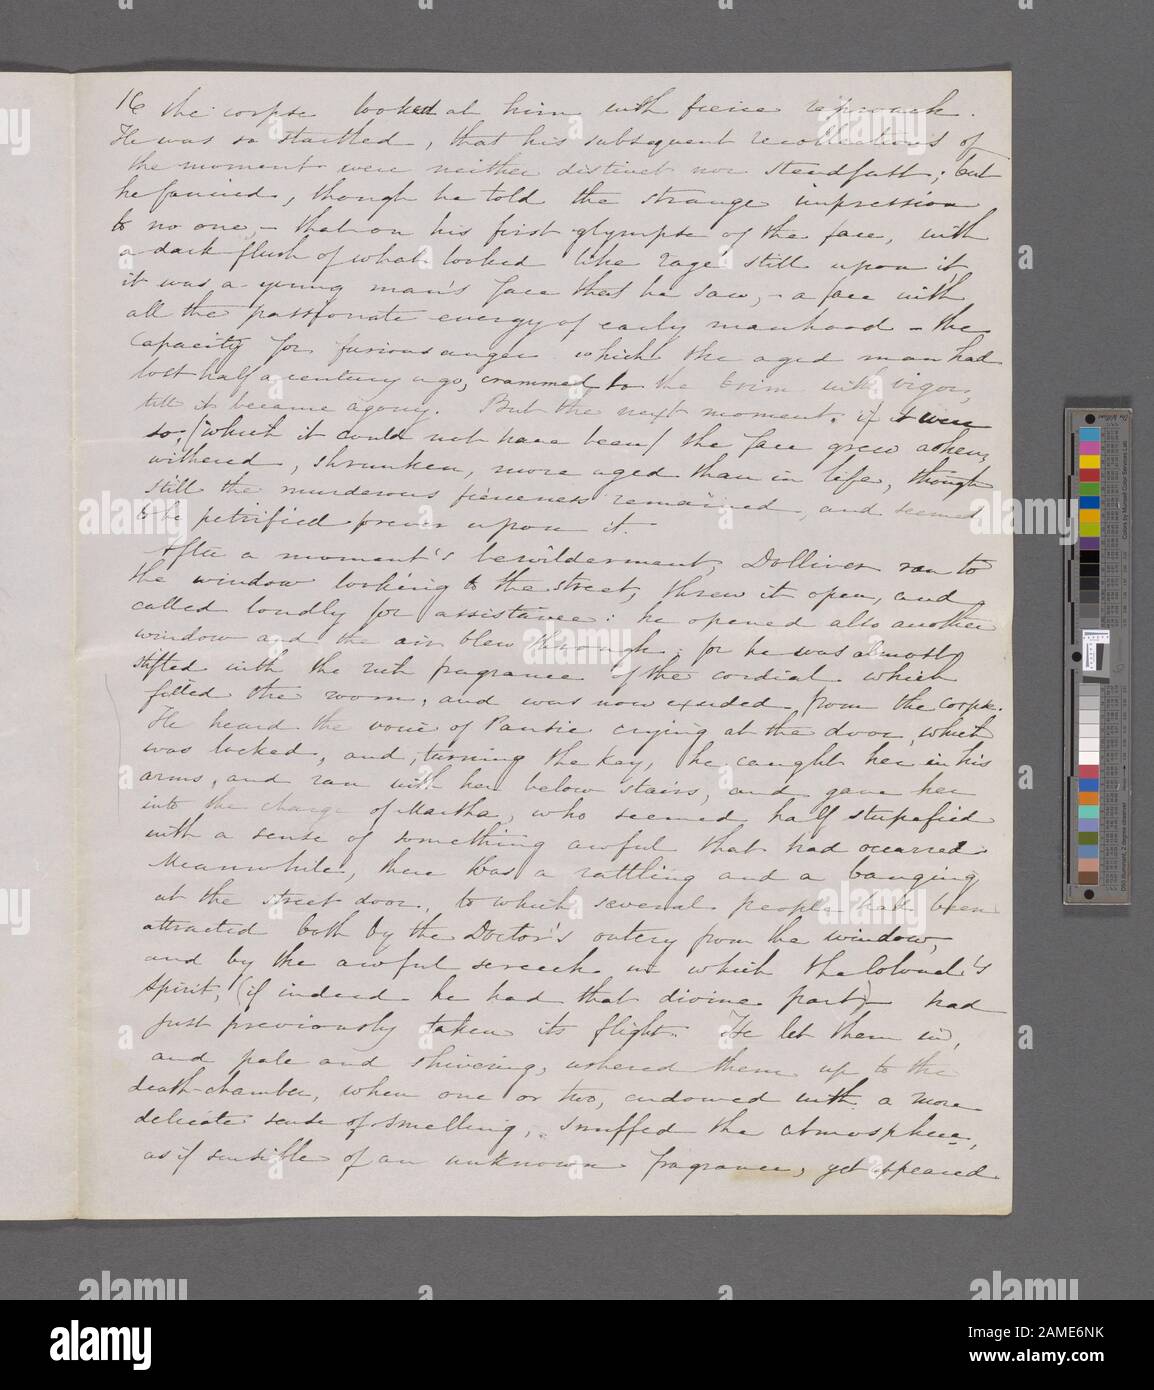 16 the corpse looked at him with fierce reproach.
He was so startled, that his subsequent recollections of
the moment were neither distinct nor steadfast; but
he fancied, though he told the strange impression
to no one, – that on his first glympse of the face, with
a dark flush of what looked like rage still upon it,
it was a young man's face that he saw, – a face with
all the passionate energy of early manhood – the
capacity for furious anger which the aged man had
lost half a century ago, crammed to the brim with vigor,
till it became agony. But the next moment, if it were
so, (which it could not have been) the face grew ashen,
withered, shrunken, more aged than in life, though
still the murderous fierceness remained, and seemed
to be petrified forever upon it.
After a moment's bewilderment, Dolliver ran to
the window looking to the street, threw it open, and
called loudly for assistance: he opened also another
window and the air blew through; for he was almost
stifled with the rich fragrance of the cordial which
filled the room, and was now exuded from the corpse.
He heard the voice of Pansie crying at the door, which
was locked, and, turning the key, he caught her in his
arms, and ran with her below stairs, and gave her
into the charge of Martha, who seemed half stupefied
with a sense of something awful that had occurred.
Meanwhile, there was a rattling and a banging
at the street door, to which several people had been
attracted both by the Doctor's outcry from the window,
and by the awful screech in which the Colonel's
spirit, (if indeed he had that divine part) had
just previously taken its flight. He let them in,
and pale and shivering, ushered them up to the
death-chamber, when one or two, endowed with a more
delicate sense of smelling, snuffed the atmosphere,
as if sensible of an unknown fragrance, yet appeared
alamy
Image ID: 2AME6NK
www.alamy.com